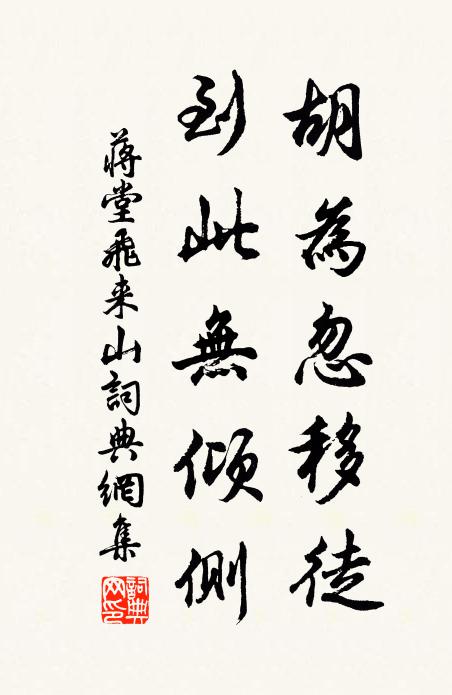 胡為忽移徒
到此無傾側
蔣堂飛来山詞典網集
詞典網印